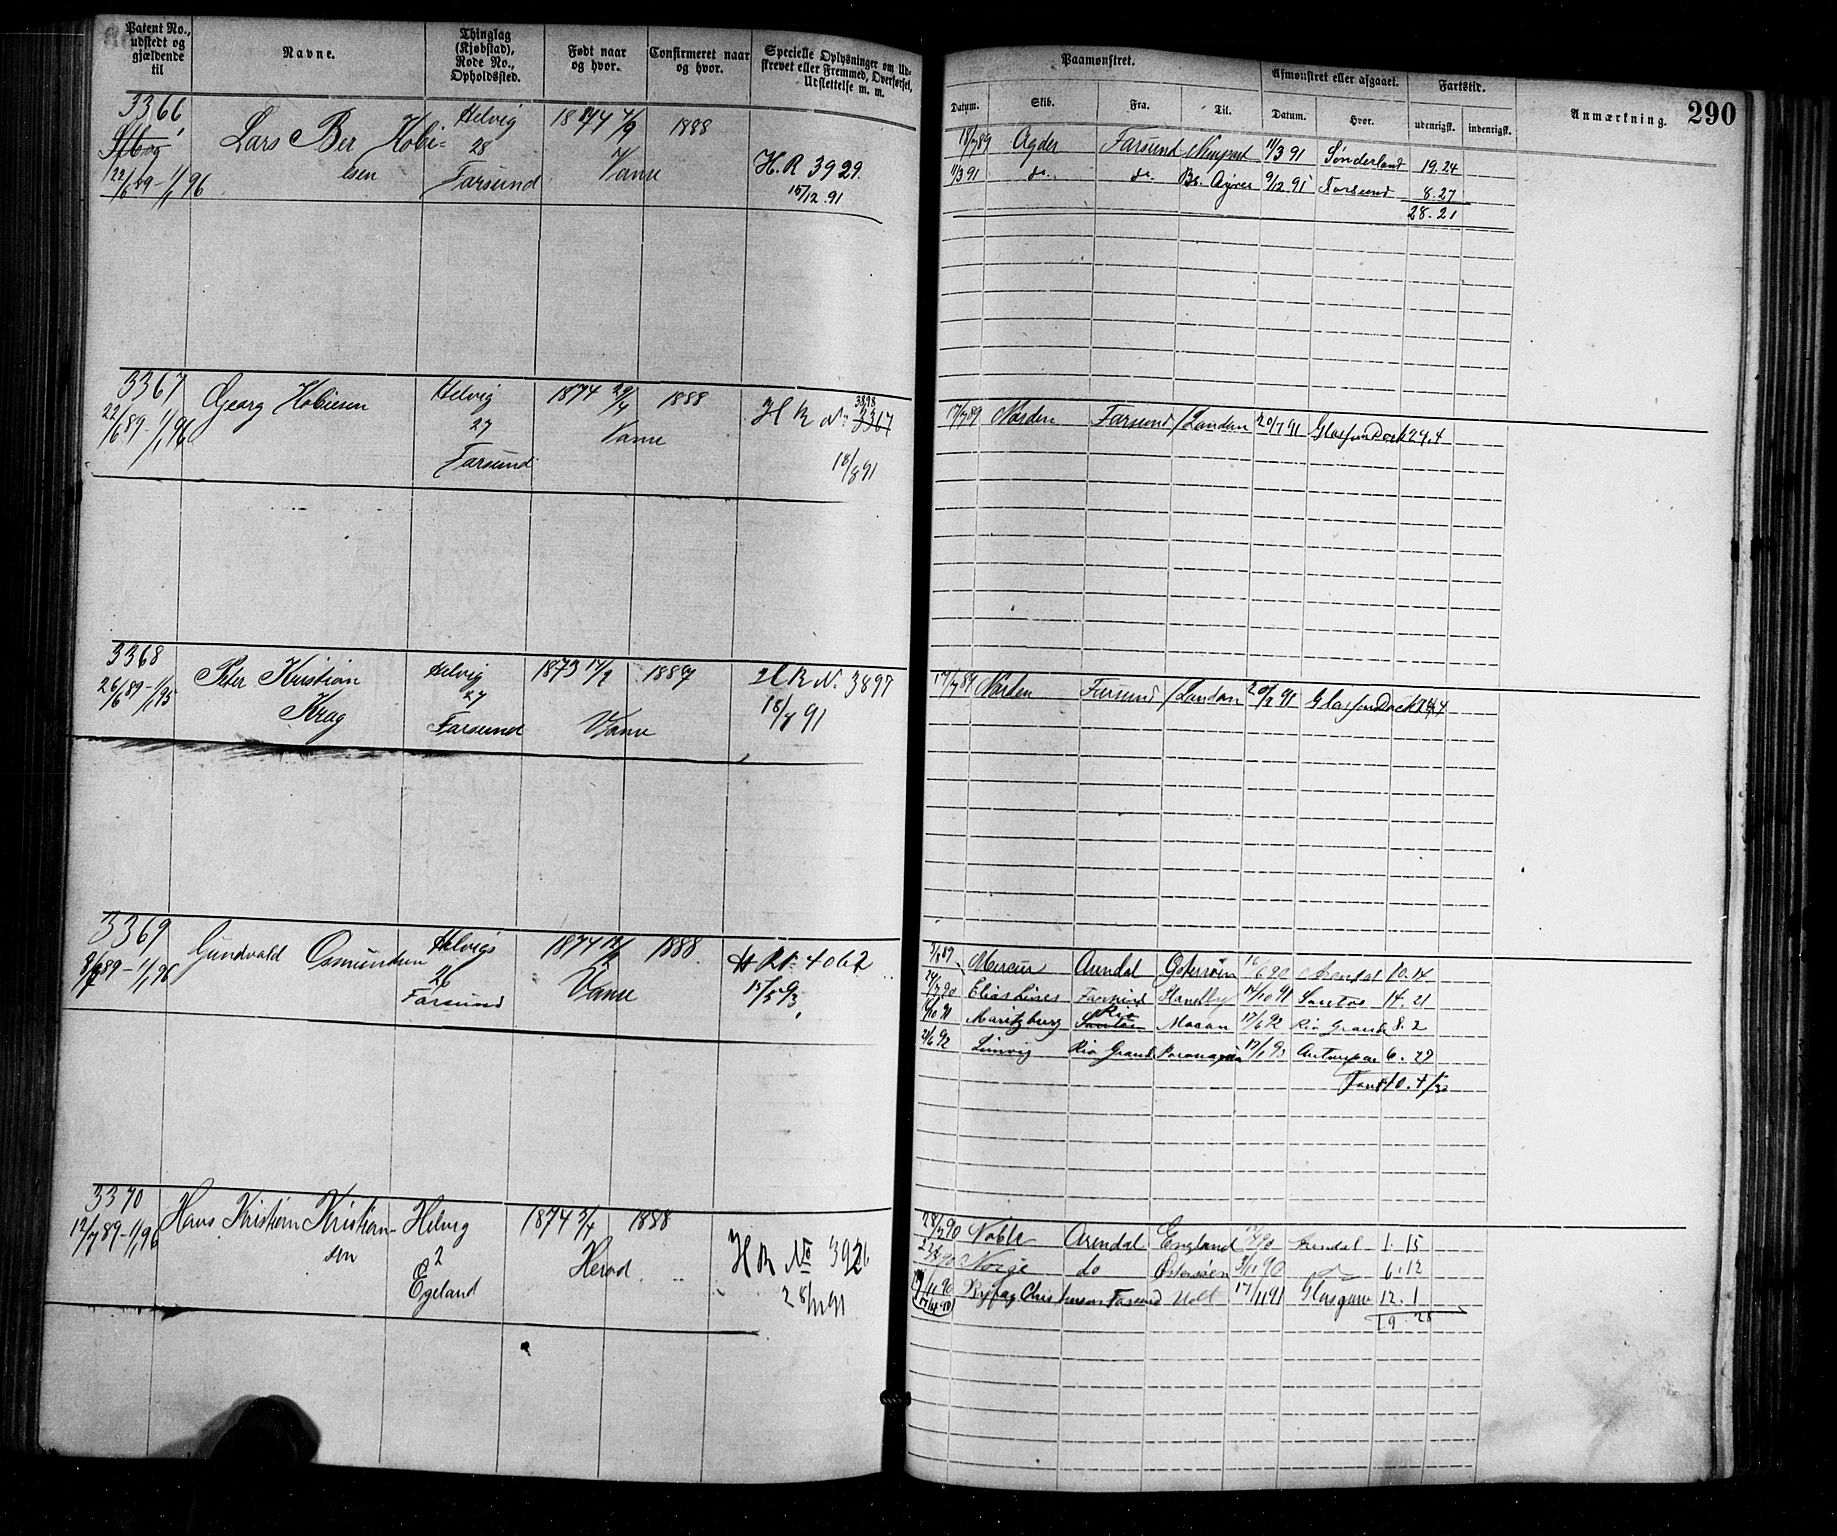 Patent No., udstedt og gjældende til
Navne.
Thinglag (Kjøbstad), Rode No., Opholdssted.
Født naar og hvor.
Confirmeret naar og hvor.
Specielle Oplysninger om Udskrevet eller Fremmed, Overførsel, Udslettelse m. m.
Paamønstret.
Afmønstret eller afgaaet.
Fartstid.
Anmærkning.
290
Datum.
Skib.
Fra.
Til.
Datum.
Hvor.
udenrigsk.
indenrigsk.
3366
22/6 89 - 1/1 96
Lars Ber Hobi-
esen
Helvig
28
Farsund
1874 7/9
Vanse
1888
H.R 3929
15/12.91
18/7 89 Agder Farsund 11/3 91 Sønderland 19.24
11/3 91 do. do. Bs. Ayres 9/12.91 Farsund 8.27
28.21
3367
22/6 89 - 1/1 96
Georg Hobiesen
Helvig
27
Farsund
1874 29/4
Vanse
1888
3898
H R No 3367
18/8 91
17/7 89 Norden Farsund / London 20/7 91 Glasson Dock 24.4
3368
26/6 89 - 1/1 95
Peter Kristian
Krag
Helvig
27
Farsund
1873 17/2
Vanse
1887
H R No 3897
18/7 91
17/7 89 Norden Farsund / London 20/7 91 Glasson Dock 24.4
3369
8/7 89 - 1/1 96
Gundvald Osmundsen
Helvig
26
Farsund
1874
Vanse
1888
H R No 4062
15/5 93
Mercur Arendal Østersøen 16/6 90 Arendal 10.14
24/7 90 Elias Lines Farsund 14/10 91 Santos 14.21
Maritzburg Rio 17/6 92 Rio Grand 8.2
21/6 92 Rio Grand 17/1 93 Antwerpen 6.27
3370
12/7 89 - 1/1 96
Hans Kristian Kristian-
sen
Helvig
2
Egeland
1874 3/4
Herad
1888
H R No 3926
28/11 91
28/2 90 Noble Arendal England Arendal 1.15
Norge do Østersøen 3/11 90 do 6.12
Farsund 17/11 91 Glasgow 12.1
19.28